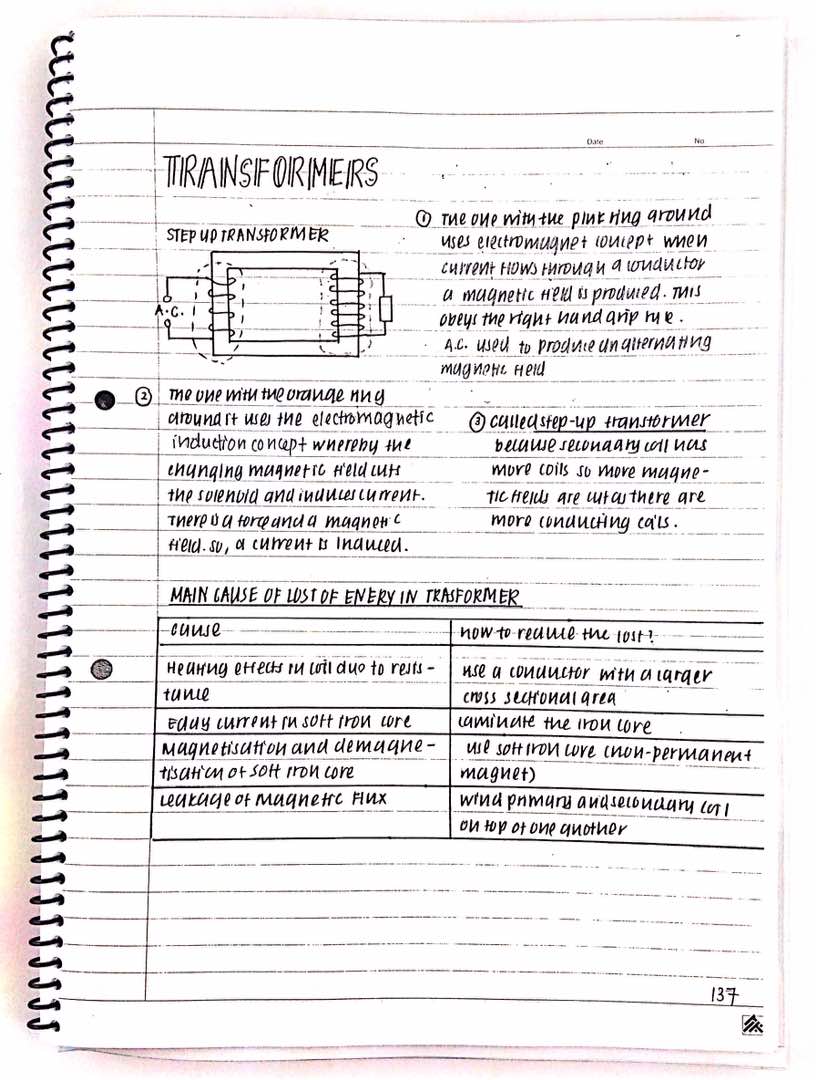 Date
No
TRANSFORMERS
STEP UP TRANSFORMER
A.C.
① The one with the pink ring around
uses electromagnet concept when
current flows through a conductor
a magnetic field is produced. This
obeys the right hand grip rule.
A.C. used to produce an alternating
magnetic field
② The one with the orange ring
around it uses the electromagnetic
induction concept whereby the
changing magnetic field cuts
the solenoid and induces current.
There is a force and a magnetic
field. so, a current is induced.
③ called step-up transformer
because secondary coil has
more coils so more magne-
tic fields are cut as there are
more conducting coils.
MAIN CAUSE OF LOST OF ENERY IN TRASFORMER
cause
how to reduce the lost?
Heating effects in coil due to resis-
tance
use a conductor with a larger
cross sectional area
Eddy current in soft iron core
Laminate the iron core
Magnetisation and demagne-
tisation of soft iron core
use soft iron core (non-permanent
magnet)
Leakage of Magnetic Flux
wind primary and secondary coil
on top of one another
137